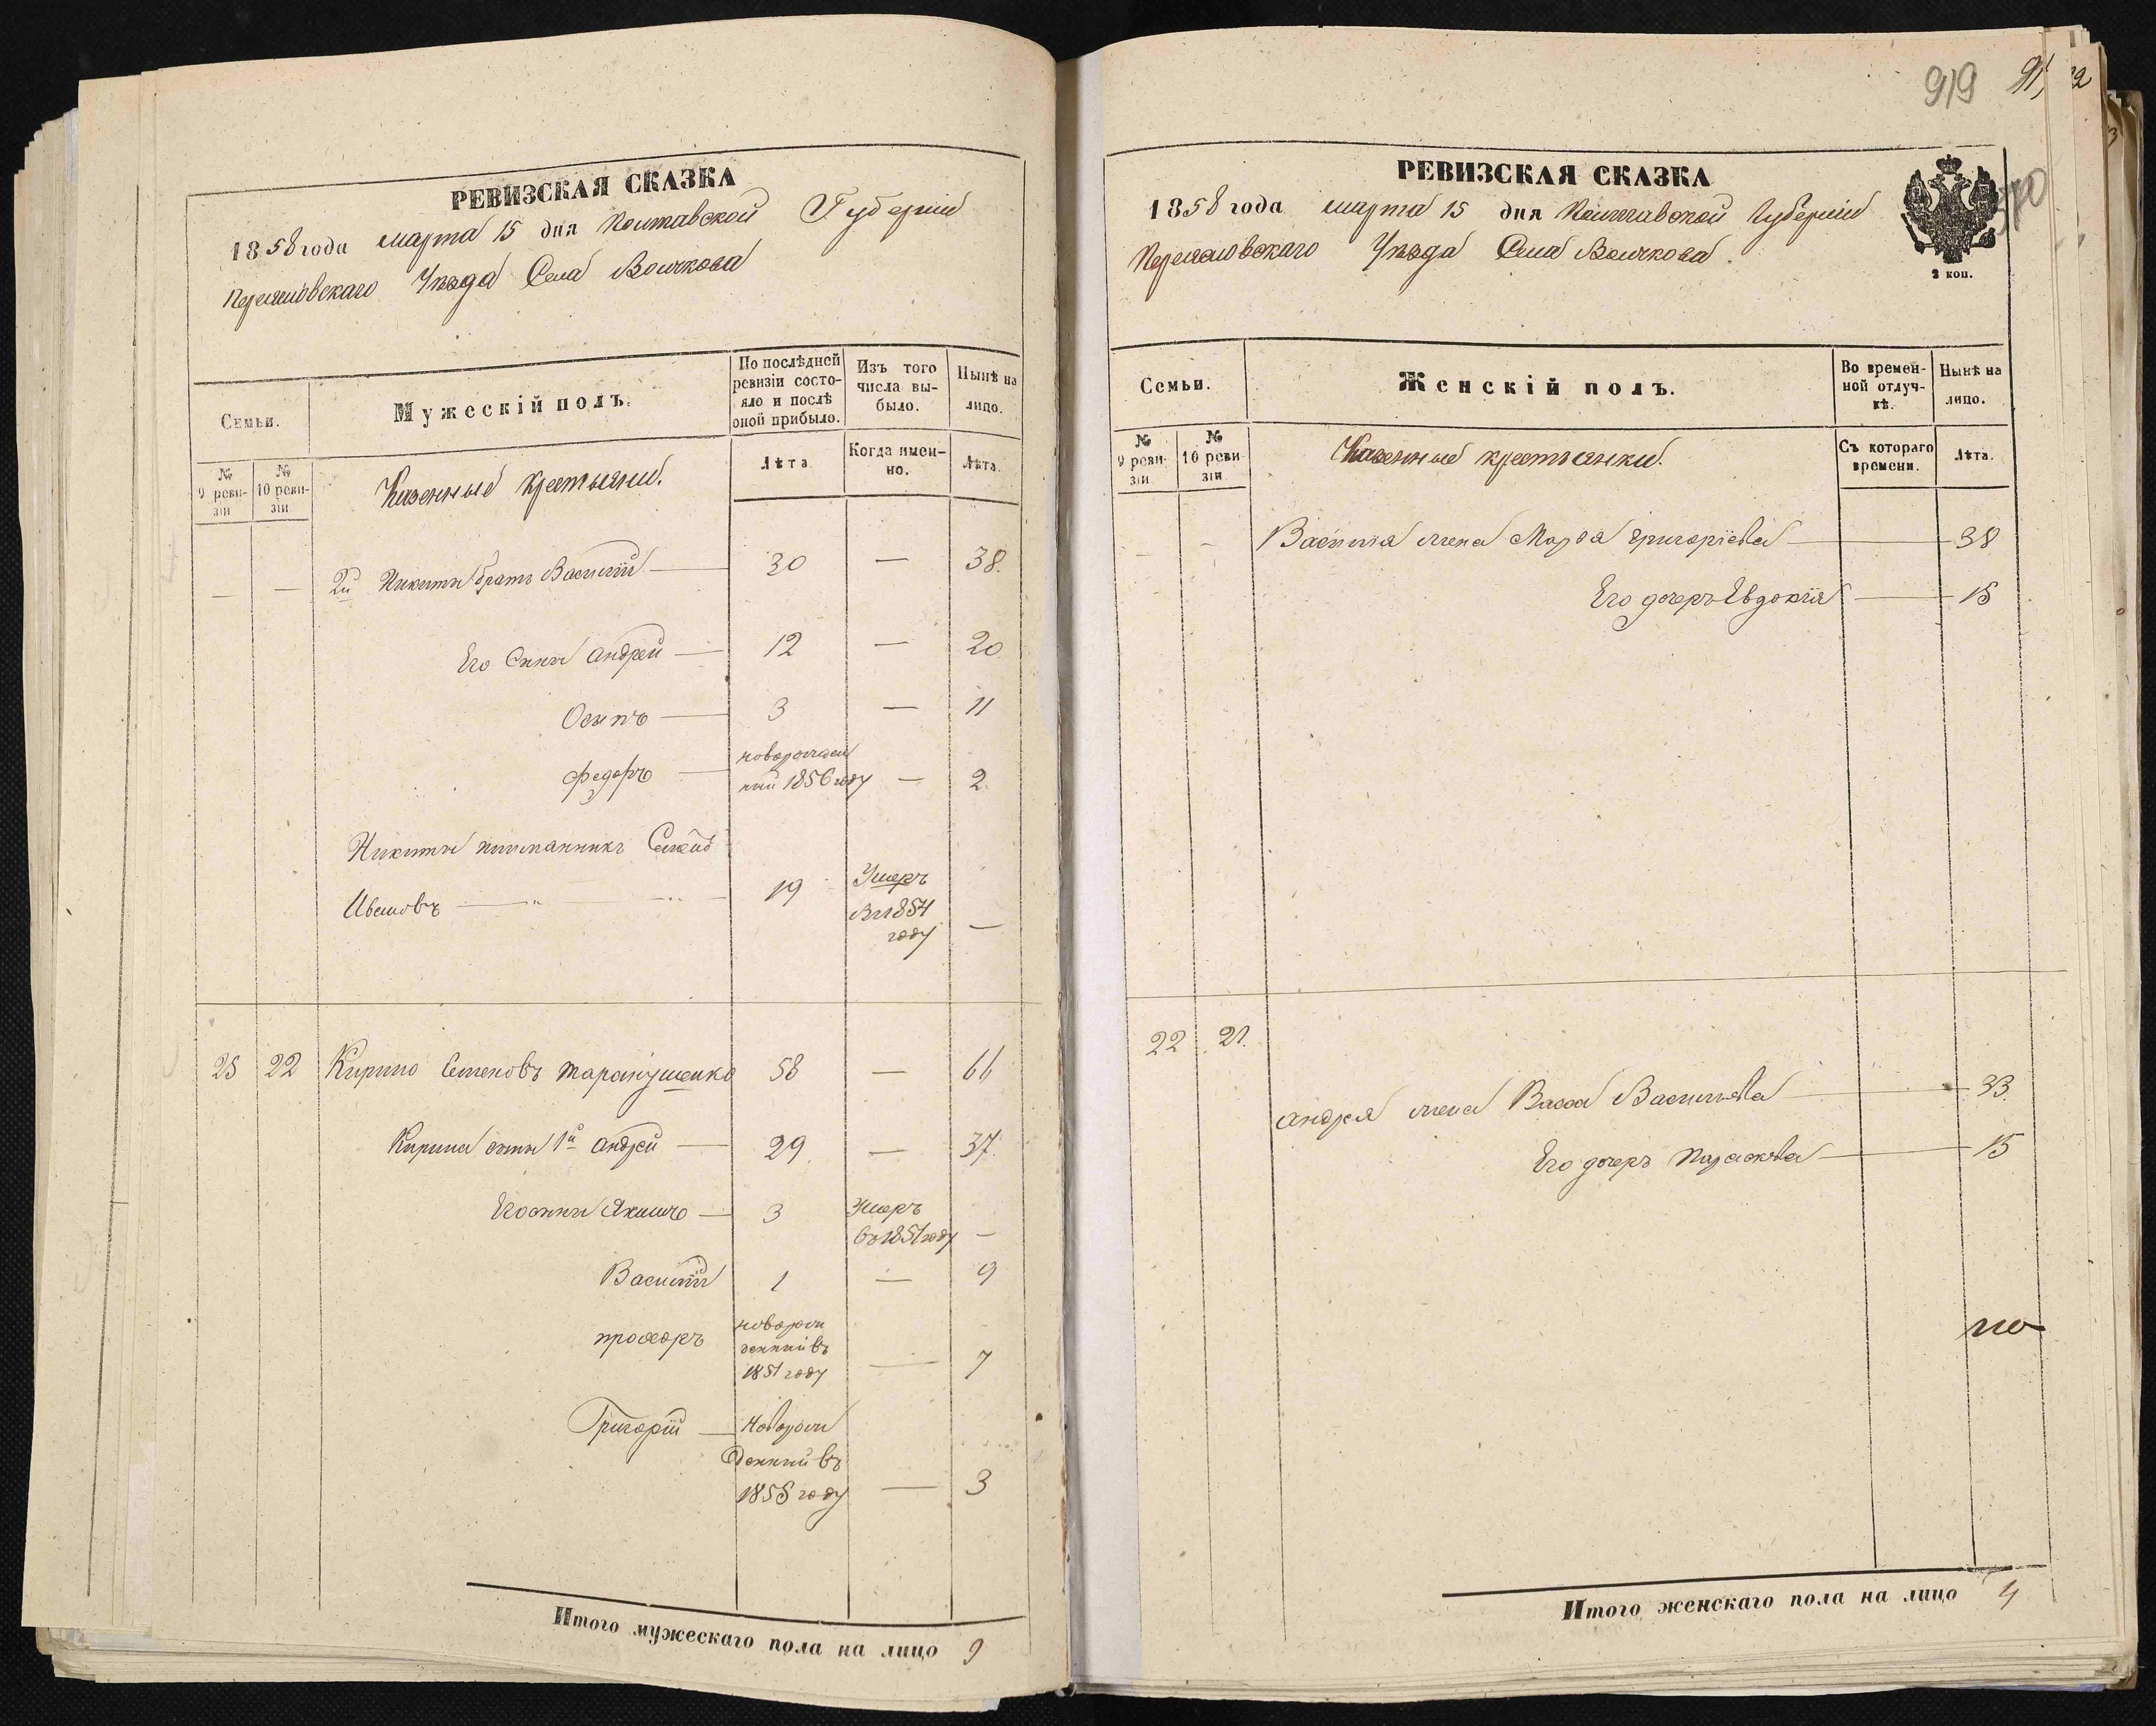 РЕВИЗСКАЯ СКАЗКА
1858 года марта 15 дня Полтавской Губернии
Переяславскаго Уѣзда Села Войткова
Семьи.
Мужескій полъ.
По послѣдней ревизіи состояло и послѣ оной прибыло.
Изъ того числа выбыло.
Нынѣ на лицо.
№ 9 ревизіи
№ 10 ревизіи
Казенные крестьяни.
Лѣта
Когда именно.
Лѣта.
— — 2й Никиты братъ Василій — 30 — 38.
Его Сыны Андрей — 12 — 20
Осипъ — 3 — 11
Федоръ — новорожден
ний 1856 году — 2
Никиты пииманникъ
Ивановъ — 19 Умеръ
в 1854
году —
23 22 Кирило Семеновъ Таранушенко 58 — 66
Кирила сыны 1й Андрей — 29 — 37.
Его сыны Якимъ — 3 Умеръ
въ 1851 году —
Василій 1 — 9
Прохоръ новорож
денний въ
1851 году — 7
Григорій — Новорож
денний въ
1855 году — 3
Итого мужескаго пола на лицо 9
919
2
РЕВИЗСКАЯ СКАЗКА
1858 года марта 15 дня Полтавской Губерніи
Переяславскаго Уѣзда Села Войткова.
2 коп.
Семьи.
Женскій полъ.
Во временной отлучкѣ.
Нынѣ на лицо.
№ 9 ревизіи
№ 10 ревизіи
Казенные крестьянки.
Съ котораго времени.
Лѣта.
- - Василія жена Марфа Григоріева — 38
Его дочерь Евдокія — 15
22 21.
Андрея жена Васса Васильева — 33
Его дочерь Параскева — 15
по
Итого женскаго пола на лицо 4